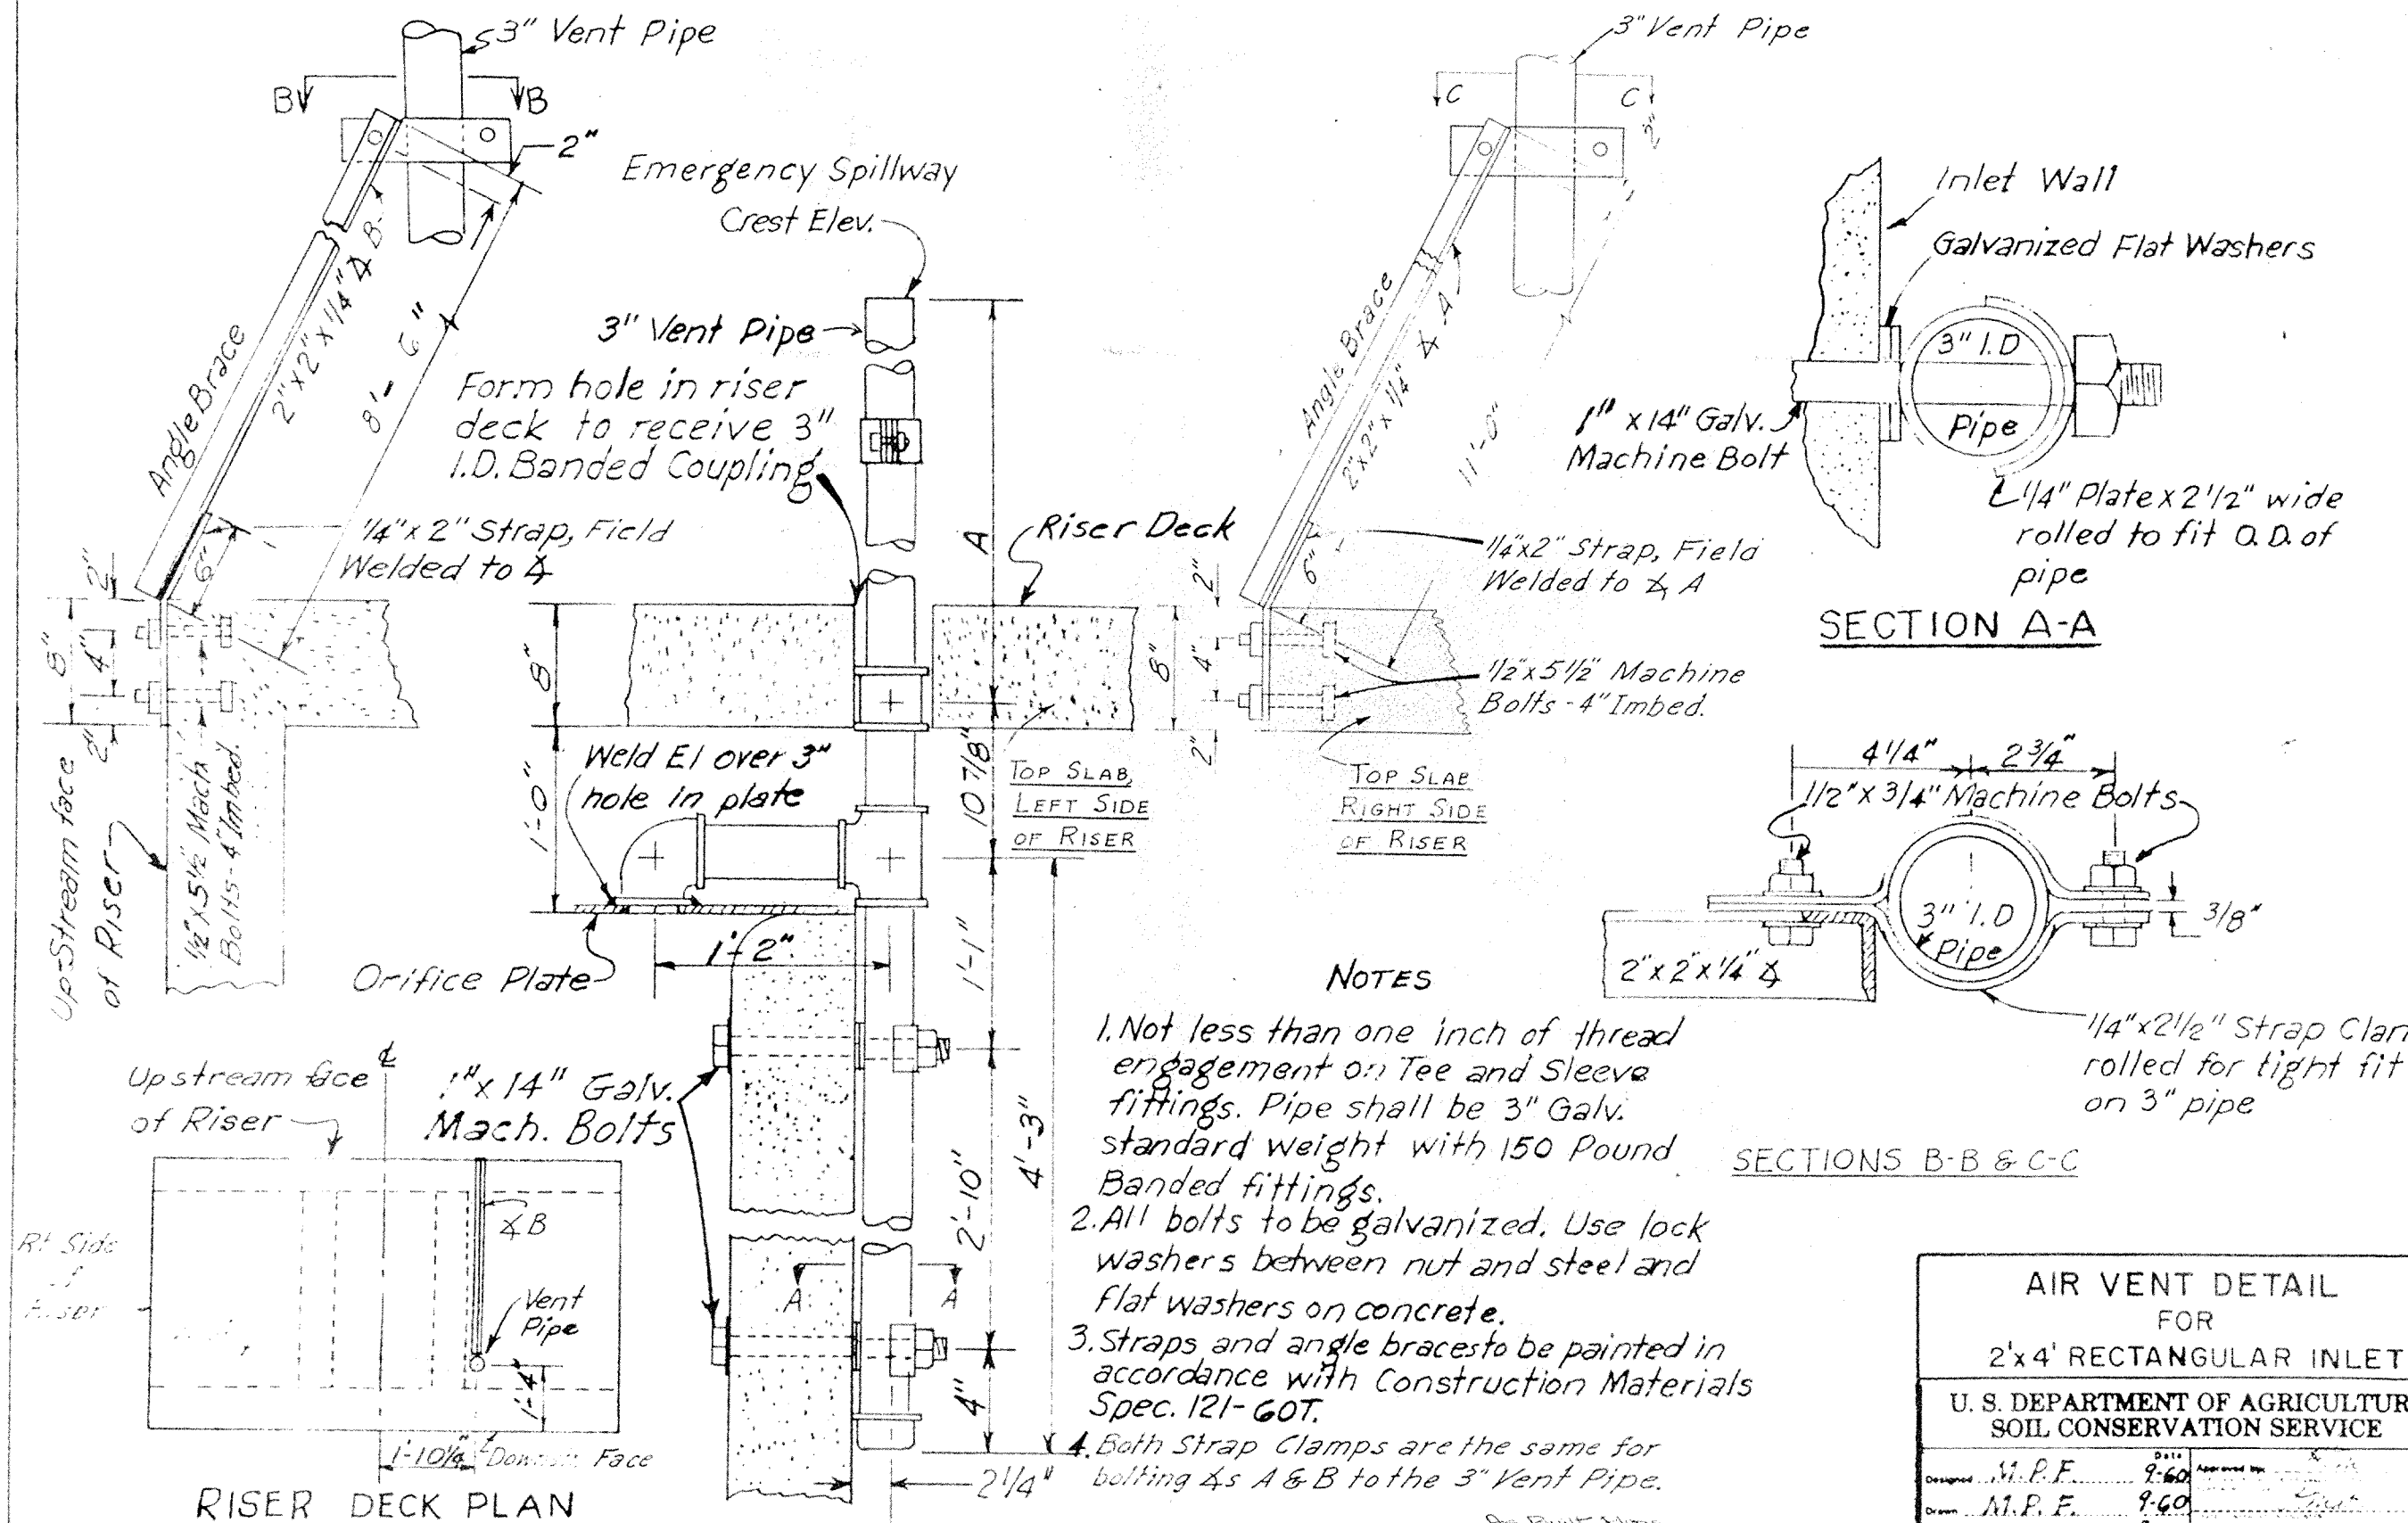 3" Vent Pipe
B
B
2"
Angle Brace
2"x2"x1/4" ∡ B
8'-6"
1/4"x2" Strap, Field
Welded to ∡
6"
2"
8"
4"
2"
Up-Stream face
of Riser
1/2"x5 1/2" Mach
Bolts-4" Imbed.
Emergency Spillway
Crest Elev.
3" Vent Pipe
Form hole in riser
deck to receive 3"
I.D. Banded Coupling
A
Riser Deck
8"
1'-0"
Weld El over 3"
hole in plate
10 7/8"
TOP SLAB,
LEFT SIDE
OF RISER
Orifice Plate
1'-2"
1'-1"
1"x14" Galv.
Mach. Bolts
2'-10"
4'-3"
A
A
4"
2 1/4"
3" Vent Pipe
C
C
2"
Angle Brace
2"x2"x1/4" ∡ A
11'-0"
6"
1/4"x2" Strap, Field
Welded to ∡ A
2"
8"
4"
2"
1/2"x5 1/2" Machine
Bolts-4" Imbed.
TOP SLAB
RIGHT SIDE
OF RISER
Inlet Wall
Galvanized Flat Washers
3" I.D
Pipe
1" x14" Galv.
Machine Bolt
1/4" Plate x 2 1/2" wide
rolled to fit O.D. of
pipe
SECTION A-A
4 1/4"
2 3/4"
1/2"x 3/4" Machine Bolts
3" I.D
Pipe
3/8"
2"x2"x1/4" ∡
1/4"x2 1/2" Strap Clam
rolled for tight fit
on 3" pipe
SECTIONS B-B & C-C
Upstream face
of Riser
℄
Rt Side
of
Riser
∡B
Vent
Pipe
1'-4"
1'-10 1/4"
Face
RISER DECK PLAN
NOTES
1. Not less than one inch of thread
engagement on Tee and Sleeve
fittings. Pipe shall be 3" Galv.
standard weight with 150 Pound
Banded fittings.
2. All bolts to be galvanized. Use lock
washers between nut and steel and
flat washers on concrete.
3. Straps and angle braces to be painted in
accordance with Construction Materials
Spec. 121-60T.
4. Both Strap Clamps are the same for
bolting ∡s A & B to the 3" Vent Pipe.
AIR VENT DETAIL
FOR
2'x4' RECTANGULAR INLET
U. S. DEPARTMENT OF AGRICULTUR
SOIL CONSERVATION SERVICE
Date
Designed M.P.F. 9-60 Approved by
Drawn M.P.F. 9-60